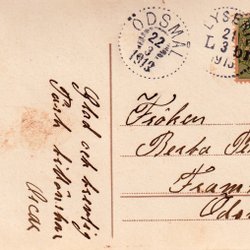 ÖDSMÅL
22
3
1913
LYSE
21
3
1913
Glad och treflig
Påsk tillönskas
Oscar
Fröken
Berta
Fram
Öds